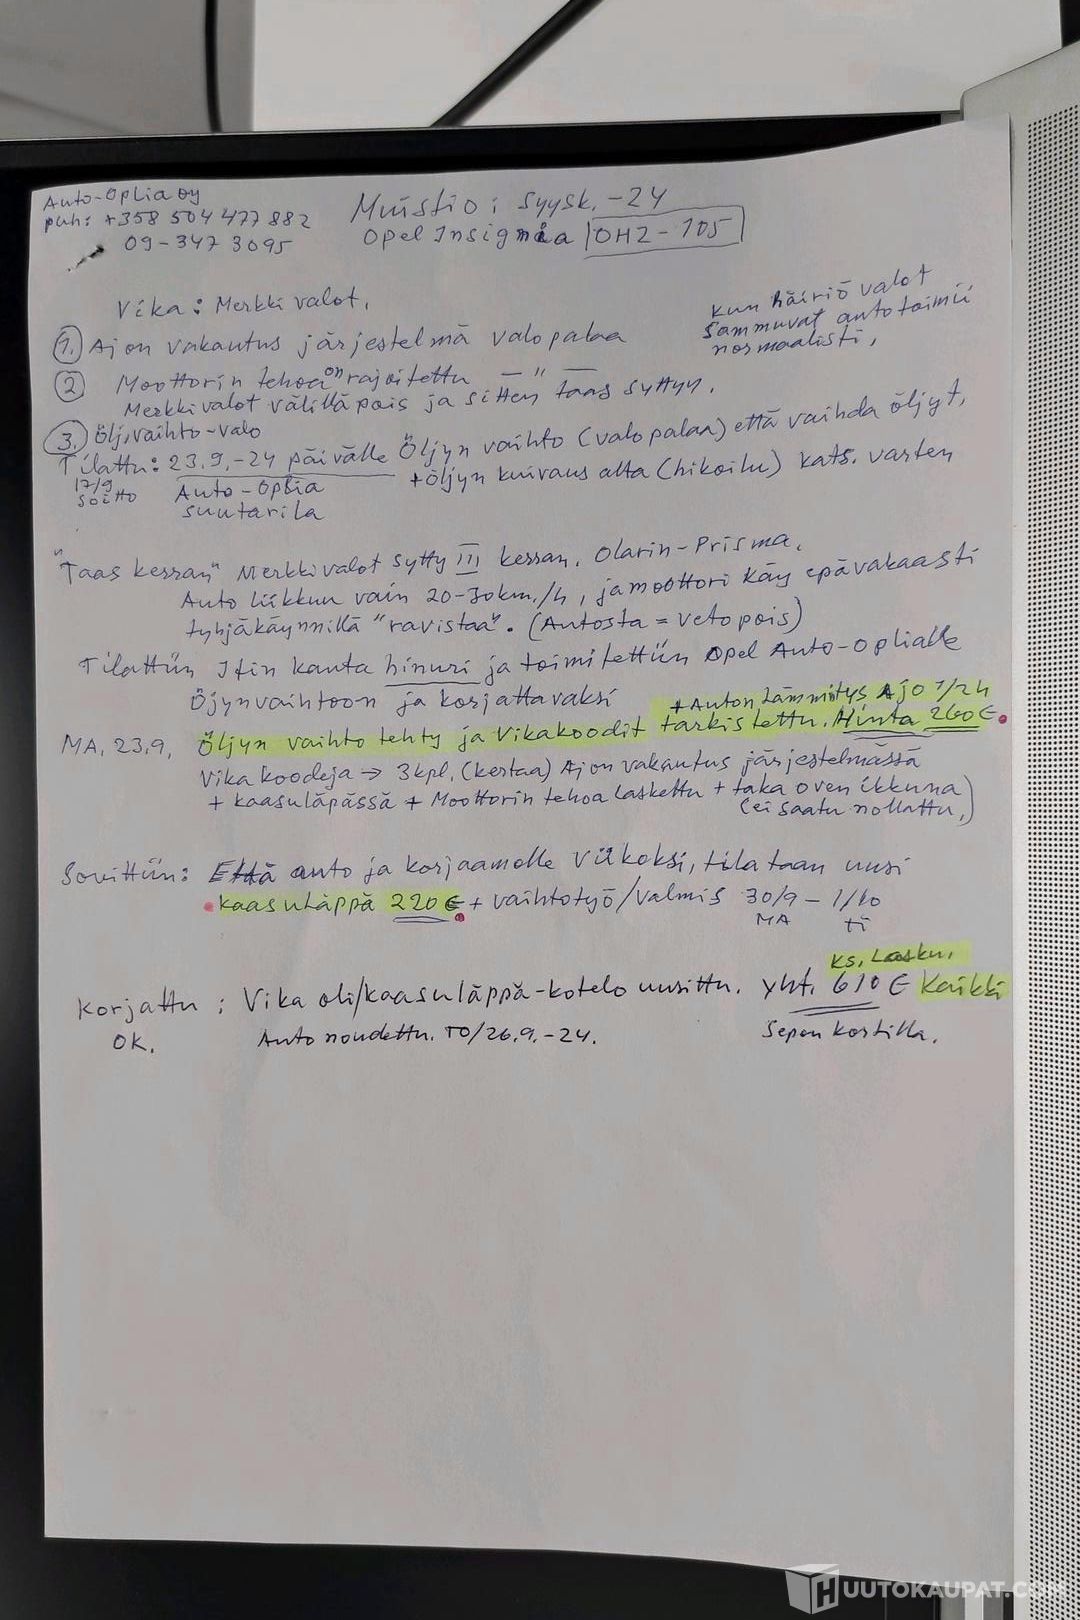 Auto-Oplia oy
puh: +358 504 477 882
09-347 3095
Muistio: Syysk. -24
Opel Insignia OHZ-105
Vika: Merkki valot.
kun häiriö valot
sammuvat auto toimii
normaalisti,
1. Ajon vakautus järjestelmä valo palaa
2 Moottorin tehoa on rajoitettu — " —
Merkki valot välillä pois ja sitten taas syttyy.
3. Öljyvaihto-valo
Tilattu: 23.9.-24 päivälle Öljyn vaihto (valo palaa) että vaihda öljyt,
17/9
soitto
Auto-Oplia
suutarila
+öljyn kuivaus alta (hikoilu) kats. varten
"Taas kerran" Merkkivalot sytty III kerran. Olarin-Prisma.
Auto liikkuu vain 20-30km./h, ja moottori käy epävakaasti
tyhjäkäynnillä "ravistaa". (Autosta = veto pois)
Tilattiin Ifin kautta hinuri ja toimitettiin Opel Auto-Oplialle
Öjynvaihtoon ja korjattavaksi
+Auton Lämmitys Ajo 1/2h
MA, 23.9, Öljyn vaihto tehty ja Vikakoodit tarkistettu. Hinta 260€.
Vika koodeja → 3kpl. (kertaa) Ajon vakautus järjestelmässä
+ kaasuläpässä + Moottorin tehoa laskettu + taka oven ikkuna
(ei saatu nollattu,)
Sovittiin: Että auto jä korjaamolle viikoksi, tilataan uusi
kaasuläppä 220€ + vaihtotyö/valmis 30/9 – 1/10
MA ti
ks. Lasku.
Korjattu: Vika oli/kaasuläppä-kotelo uusittu. yht. 610€ Kaikki
OK. Auto noudettu. TO/26.9.-24. Sepon kortilla.
HUUTOKAUPAT.COM